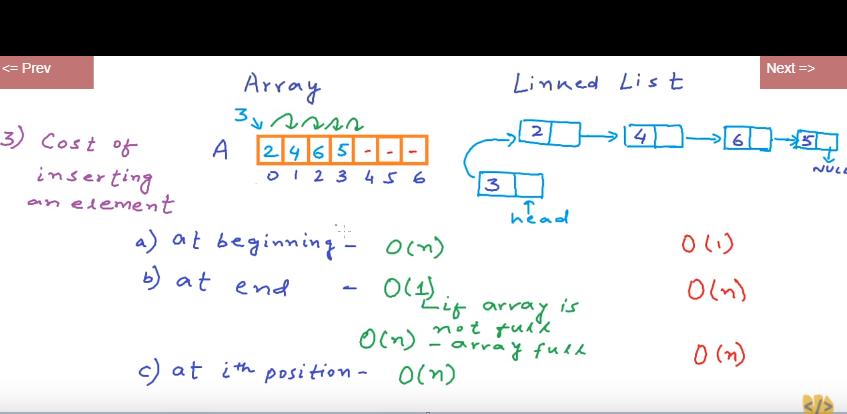 <= Prev
Next =>
Array
Linked List
3) Cost of
inserting
an element
3
A
2 4 6 5 - - -
0 1 2 3 4 5 6
2
4
6
5
NULL
3
head
a) at beginning - O(n)
O(1)
b) at end - O(1)
O(n)
if array is
not full
O(n) - array full
O(n)
c) at ith position - O(n)
</>